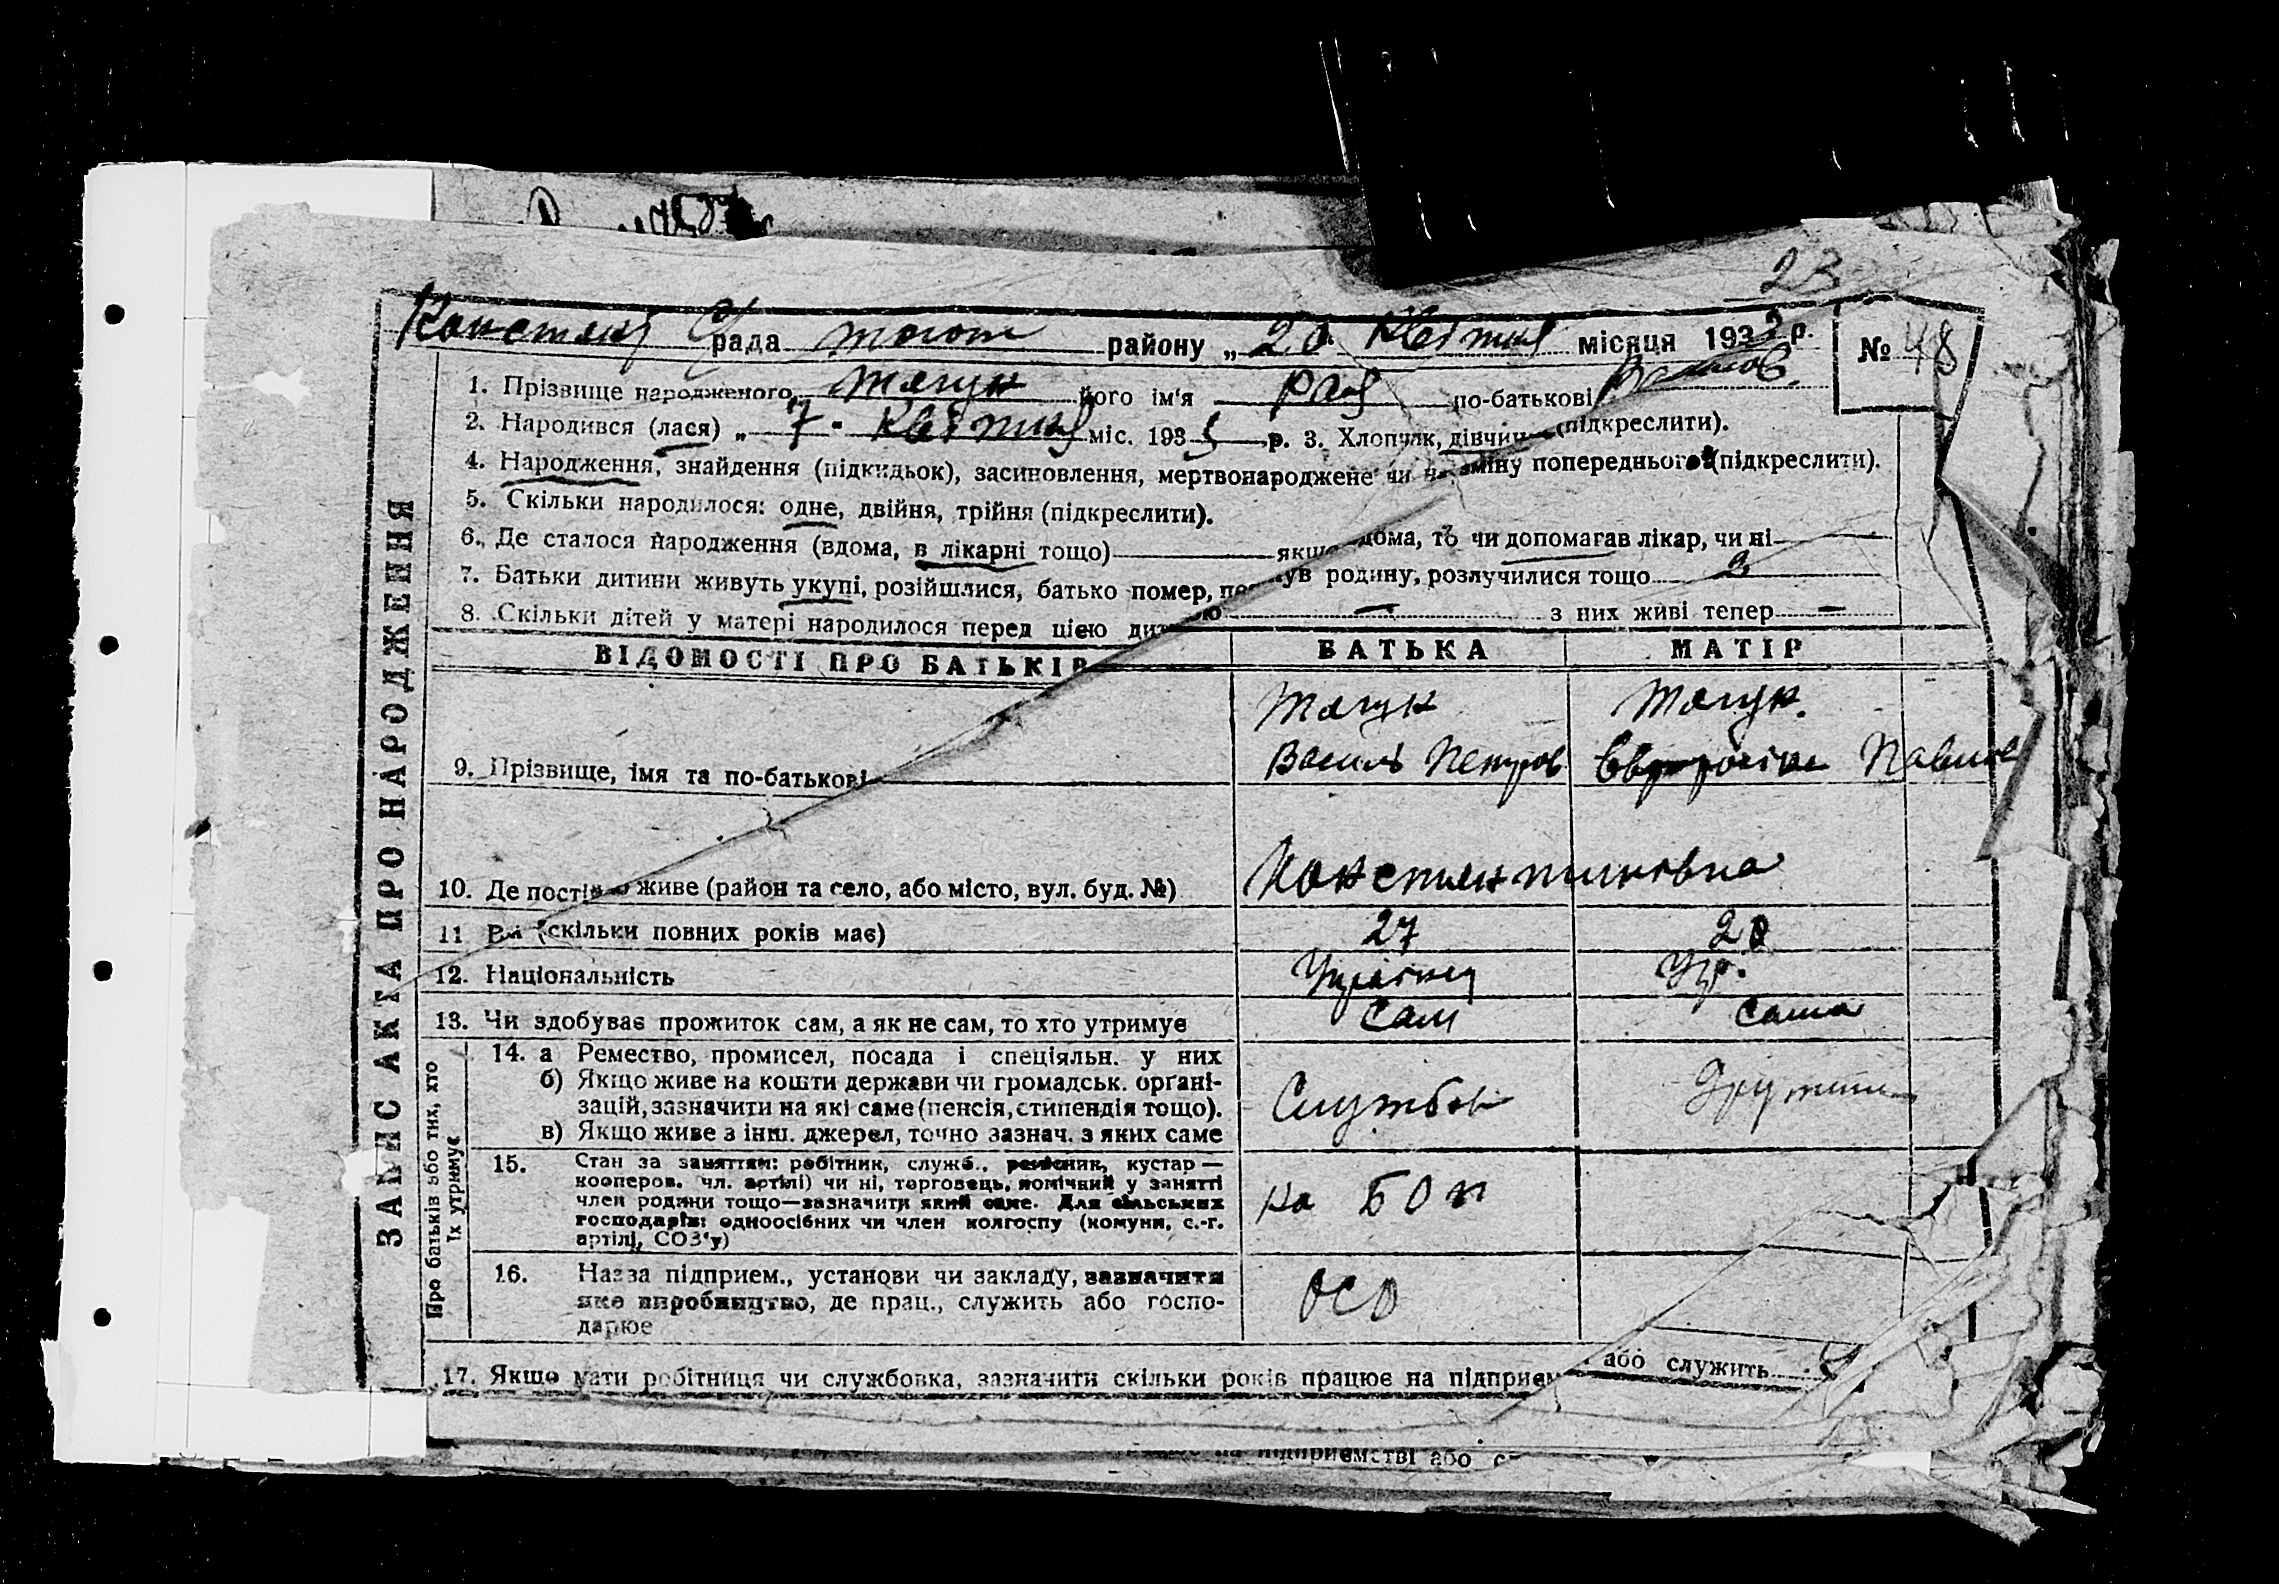 23
рада району „20 Квітня місяця 193 р. № 48
1. Прізвище народженого його ім'я Рая по-батькові
2. Народився (лася) „7" Квітня міс. 193 р. 3. Хлопчик, дівчин (підкреслити).
4. Народження, знайдення (підкидьок), засиновлення, мертвонароджене чи на зміну попереднього (підкреслити).
5. Скільки народилося: одне, двійня, трійня (підкреслити).
6. Де сталося народження (вдома, в лікарні тощо) якщо вдома, то чи допомагав лікар, чи ні
7. Батьки дитини живуть укупі, розійшлися, батько помер, родину, розлучилися тощо
8. Скільки дітей у матері народилося перед цією — з них живі тепер —
ВІДОМОСТІ ПРО БАТЬКІВ БАТЬКА МАТІР
9. Прізвище, імя та по-батькові Василь Петров
10. Де постійно живе (район та село, або місто, вул. буд. №) Константиновка
11 Вік (скільки повних років має) 27 20
12. Національність Укр.
13. Чи здобуває прожиток сам, а як не сам, то хто утримує Сам Сама
14. а Ремество, промисел, посада і спеціяльн. у них
б) Якщо живе на кошти держави чи громадськ. органі-
зацій, зазначити на які саме (пенсія, стипендія тощо).
в) Якщо живе з інш. джерел, точно зазнач. з яких саме
Службов
15. Стан за заняттям: робітник, служб., ремісник, кустар —
кооперов. чл. артілі) чи ні, торговець, помічний у занятті
член родини тощо—зазначити який саме. Для сільських
господарів: одноосібних чи член колгоспу (комуни, с.-г.
артілі, СОЗ'у)
16. Назва підприєм., установи чи закладу, зазначити
яке виробництво, де прац., служить або госпо-
дарює
ОСО
17. Якщо мати робітниця чи службовка, зазначити скільки років працює на підприєм або служить
ЗАПИС АКТА ПРО НАРОДЖЕННЯ
Про батьків або тих, хто
їх утримує
на підприємстві або